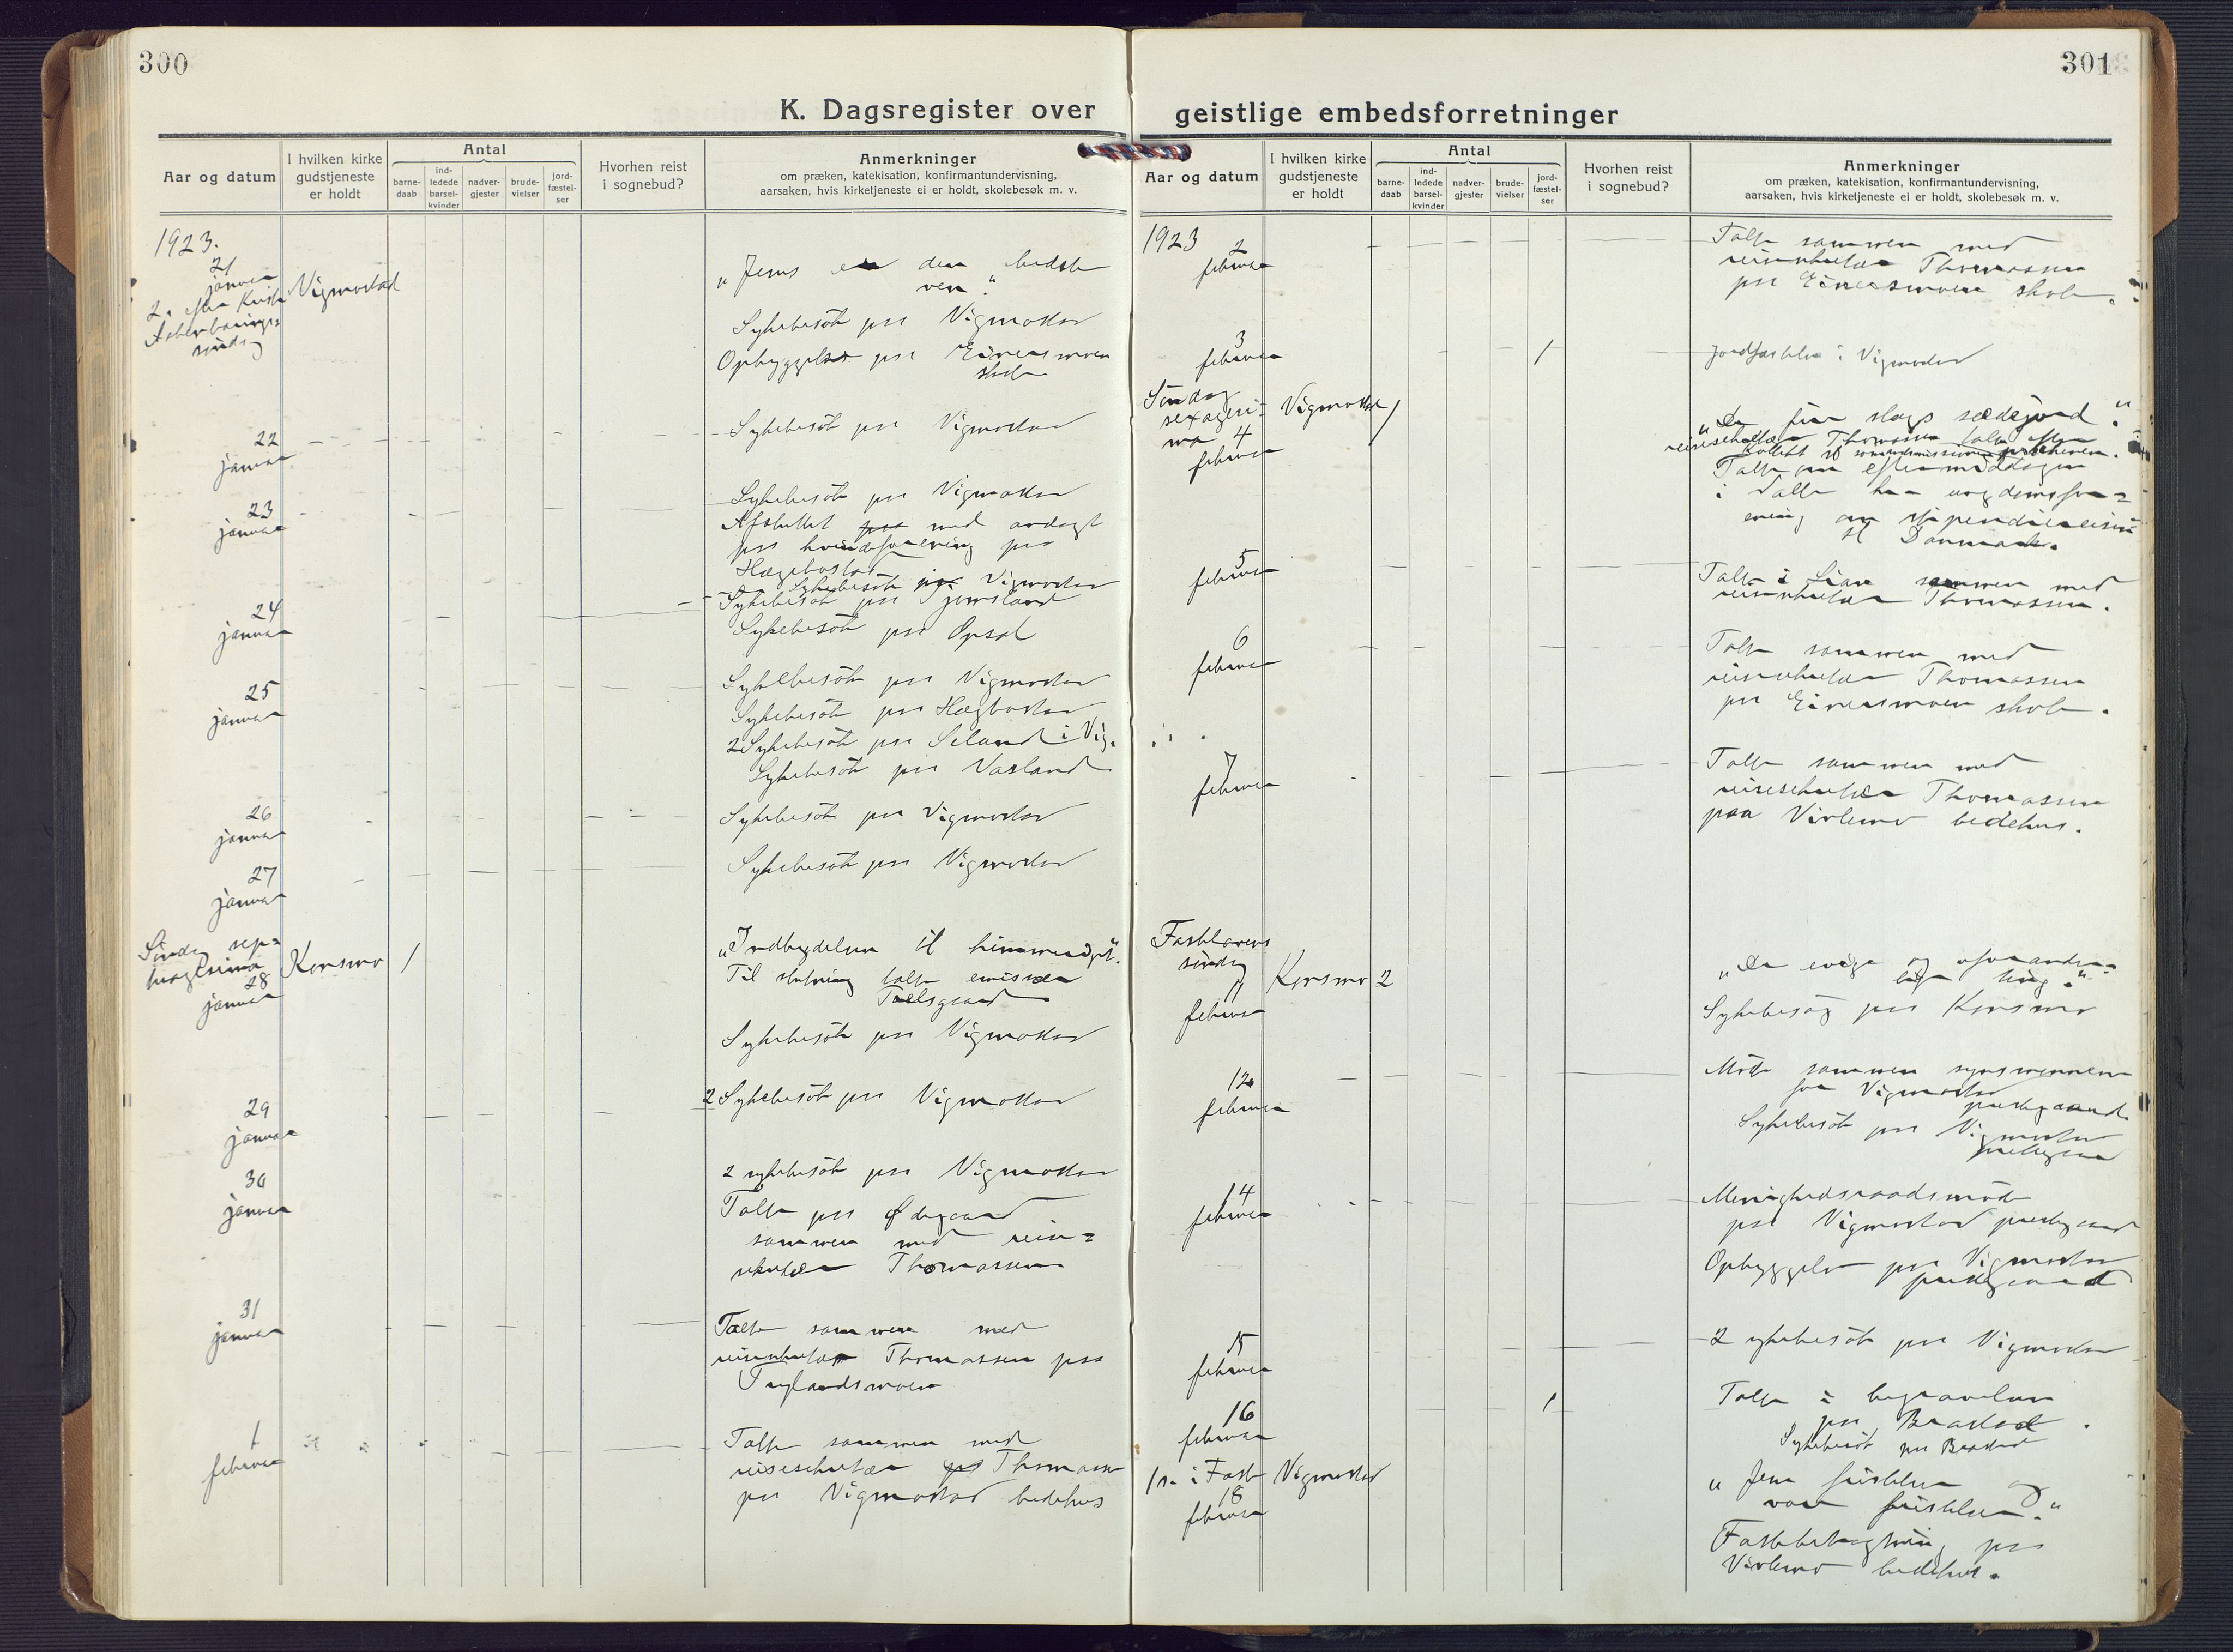 300
K. Dagsregister over
Aar og datum
I hvilken kirke
gudstjeneste
er holdt
Antal
barne-
daab
ind-
ledede
barsel-
kvinder
nadver-
gjester
brude-
vielser
jord-
fæstel-
ser
Hvorhen reist
i sognebud?
Anmerkninger
om præken, katekisation, konfirmantundervisning,
aarsaken, hvis kirketjeneste ei er holdt, skolebesøk m. v.
1923.
21
januar
2. s. efter Kristi
Aabenbarings=
søndag
Vigmostad
„Jesus er den bedste
ven."
Sykebesøk paa Vigmostad
Opbyggelse paa Eineresmoen
skole
22
januar
Sykebesøk paa Vigmostad
23
januar
Sykebesøk paa Vigmostad
Afsluttet med andagt
paa kvindeforening paa
Hægebostad
Sykebesøk paa Vigmostad
24
januar
Sykebesøk paa Gjemsland
Sykebesøk paa Opsal
25
januar
Sykebesøk paa Vigmostad
Sykebesøk paa Hægbostad
2 Sykebesøk paa Seland i Vig.
Sykebesøk paa Vasland
26
januar
Sykebesøk paa Vigmostad
27
januar
Sykebesøk paa Vigmostad
Søndag sep=
tuagesima
28
januar
Konsmo
1
„Indbydelsen til himmeriget".
Til slutning talte emissær
Sykebesøk paa Vigmostad
29
januar
2 Sykebesøk paa Vigmostad
30
januar
2 sykebesøk paa Vigmostad
Talte paa Ødegaard
sammen med reise=
sekretær Thomassen
31
januar
Talte sammen med
reisesekretær Thomassen paa
Tryglandsmoen
1
februar
Talte sammen med
reisesekretær Thomassen
paa Vigmostad bedehus
301
geistlige embedsforretninger
Aar og datum
I hvilken kirke
gudstjeneste
er holdt
Antal
barne-
daab
ind-
ledede
barsel-
kvinder
nadver-
gjester
brude-
vielser
jord-
fæstel-
ser
Hvorhen reist
i sognebud?
Anmerkninger
om præken, katekisation, konfirmantundervisning,
aarsaken, hvis kirketjeneste ei er holdt, skolebesøk m. v.
1923
2
februar
Talte sammen med
reisesekretær Thomassen
paa Eineresmoen skole.
3
februar
1
Jordfæstelse i Vigmostad
Søndag
sexagesi=
ma 4
februar
Vigmostad
1
„De fire slags sædejord".
reisesekretær Thomassen talte efter
prækenen.
Talte om eftermiddagen
i ungdomsfor=
ening om stipendiereisen
til Danmark.
5
februar
Talte i Lian sammen med
reisesekretær Thomassen.
6
februar
Talte sammen med
reisesekretær Thomassen
paa Eineresmoen skole.
7
februar
Talte sammen med
reisesekretær Thomassen
paa Virlemo bedehus.
Fastelavens
søndag
11
februar
Konsmo
2
„De evige og uforander=
lige ting."
Sykebesøg paa Konsmo
12
februar
Møte sammen synsmennene
for Vigmostad
prestegaard
Sykebesøk paa Vigmostad
prestegaard
14
februar
Menighedsraadsmøde
paa Vigmostad prestegaard
Opbyggelse paa Vigmostad
prestegaard
15
februar
2 sykebesøk paa Vigmostad
16
februar
1
Talte i begravelsen
paa Braastad.
Sykebesøk paa Braastad
1 s. i Faste
18
februar
Vigmostad
„Jesu fristelse og
vore fristelser."
Fastebetragtning paa
Virlemo bedehus.